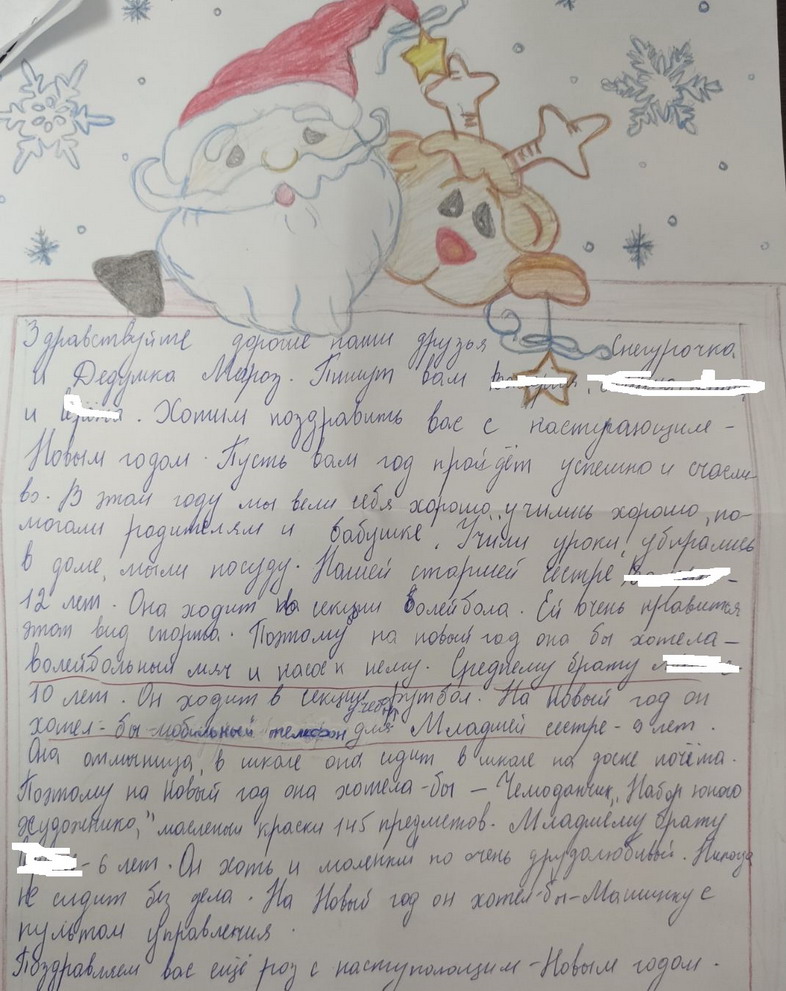 Здравствуйте дорогие наши друзья Снегурочка
и Дедушка Мороз. Пишут вам
и . Хотим поздравить вас с наступающим-
Новым годом. Пусть вам год пройдёт успешно и счасли-
во. В этом году мы вели себя хорошо, учились хорошо, по-
могали родителям и бабушке. Учили уроки, убирались
в доме, мыли посуду. Нашей старшей сестре -
12 лет. Она ходит на секции волейбола. Ей очень нравится
этот вид спорта. Поэтому на новый год она бы хотела-
волейбольный мяч и насос к нему. Среднему брату
10 лет. Он ходит в секцию футбол. На Новый год он
хотел-бы мобильный телефон для учёбы. Младшей сестре - 9 лет.
Она отличница, в школе она сидит в школе на доске почёта.
Поэтому на Новый год она хотела-бы - Чемоданчик, "Набор юного
художнико," масленыи краски 145 предметов. Младшему брату
- 6 лет. Он хоть и моленкий но очень друдолюбивый. Никода
не сидит без дела. На Новый год он хотел-бы-Машинку с
пультом управления.
Поздравляем вас ещё роз с наступоющим-Новым годом.